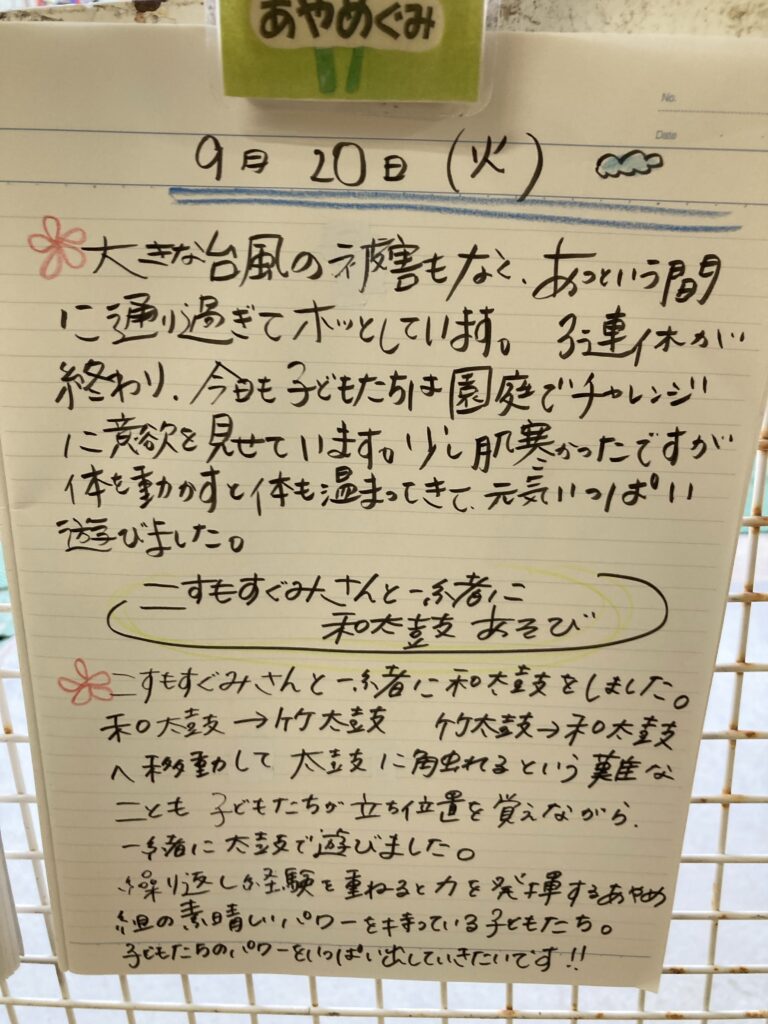 あやめぐみ
No.
Date
9月 20日 (火)
大きな台風の被害もなく、あっという間
に通り過ぎてホッとしています。 3連休が
終わり、今日も子どもたちは園庭でチャレンジ
に意欲を見せています。少し肌寒かったですが
体を動かすと体も温まってきて、元気いっぱい
遊びました。
こすもすぐみさんと一緒に
和太鼓あそび
こすもすぐみさんと一緒に和太鼓をしました。
和太鼓→竹太鼓 竹太鼓→和太鼓
へ移動して太鼓に触れるという難な
ことも子どもたちが立ち位置を覚えながら、
一緒に太鼓で遊びました。
繰り返し経験を重ねると力を発揮するあやめ
組の素晴しいパワーを持っている子どもたち。
子どもたちのパワーをいっぱい出していきたいです!!